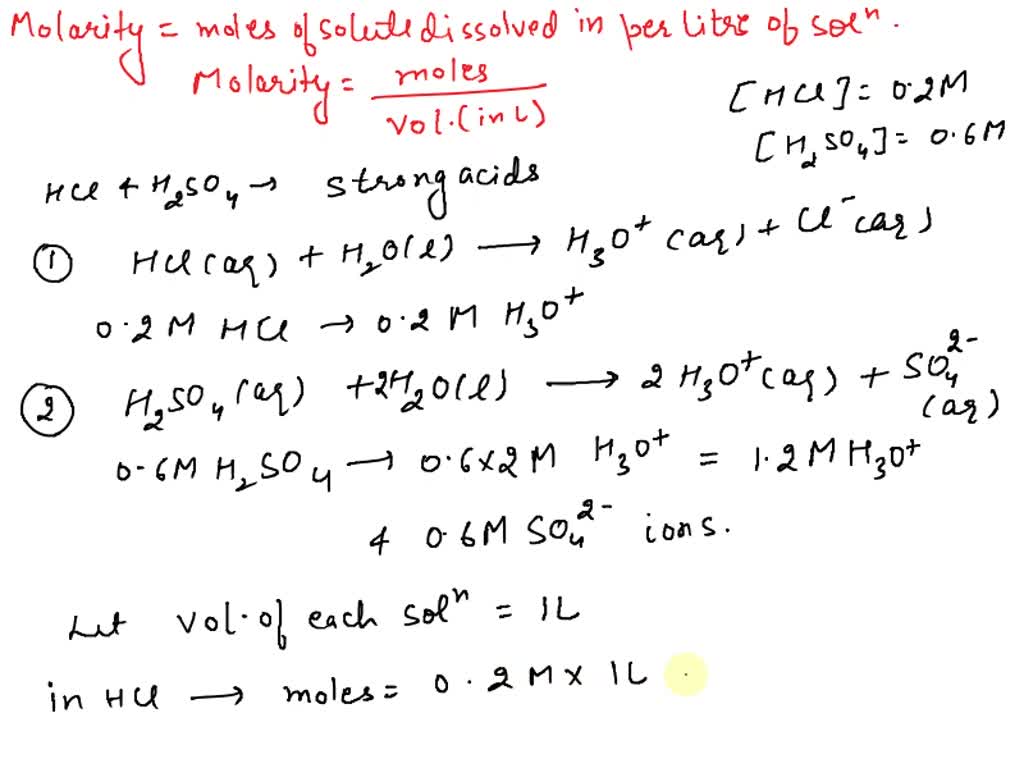 Molarity = moles of solute dissolved in per litre of solⁿ.
Molarity = moles / vol.(in L)
[HCl] = 0.2M
[H₂SO₄] = 0.6M
HCl & H₂SO₄ → strong acids
① HCl(aq) + H₂O(l) ⟶ H₃O⁺(aq) + Cl⁻(aq)
0.2 M HCl → 0.2 M H₃O⁺
② H₂SO₄(aq) + 2H₂O(l) ⟶ 2H₃O⁺(aq) + SO₄²⁻(aq)
0.6M H₂SO₄ → 0.6×2 M H₃O⁺ = 1.2 M H₃O⁺
& 0.6M SO₄²⁻ ions.
Let vol. of each solⁿ = 1L
in HCl ⟶ moles = 0.2 M × 1L